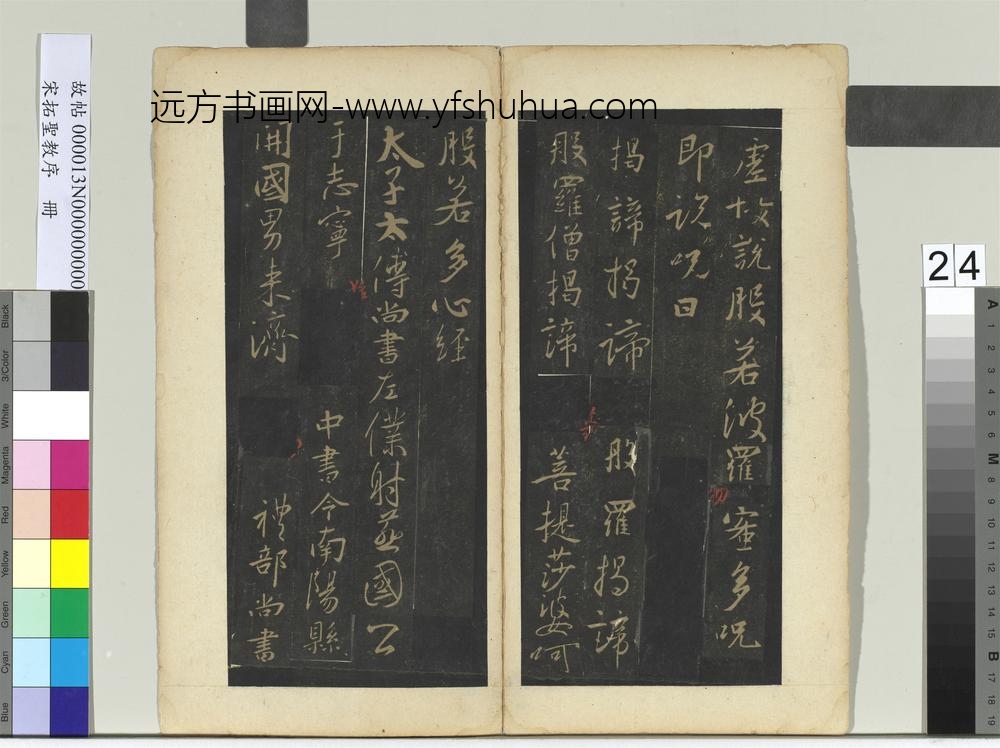 虛故說般若波羅蜜多咒
即說咒曰
揭諦揭諦 般羅揭諦
般羅僧揭諦 菩提莎婆呵
般若多心經
太子太傅尚書左僕射燕國公
于志寧 中書令南陽縣
開國男来濟 禮部尚書
远方书画网-www.yfshuhua.com
故帖 000013N000000000
宋拓聖教序 冊
24
Black
3/Color
White
Magenta
Red
Yellow
Green
Cyan
Blue
A
1
2
3
4
5
6
M
8
9
10
11
12
13
14
15
B
17
18
19